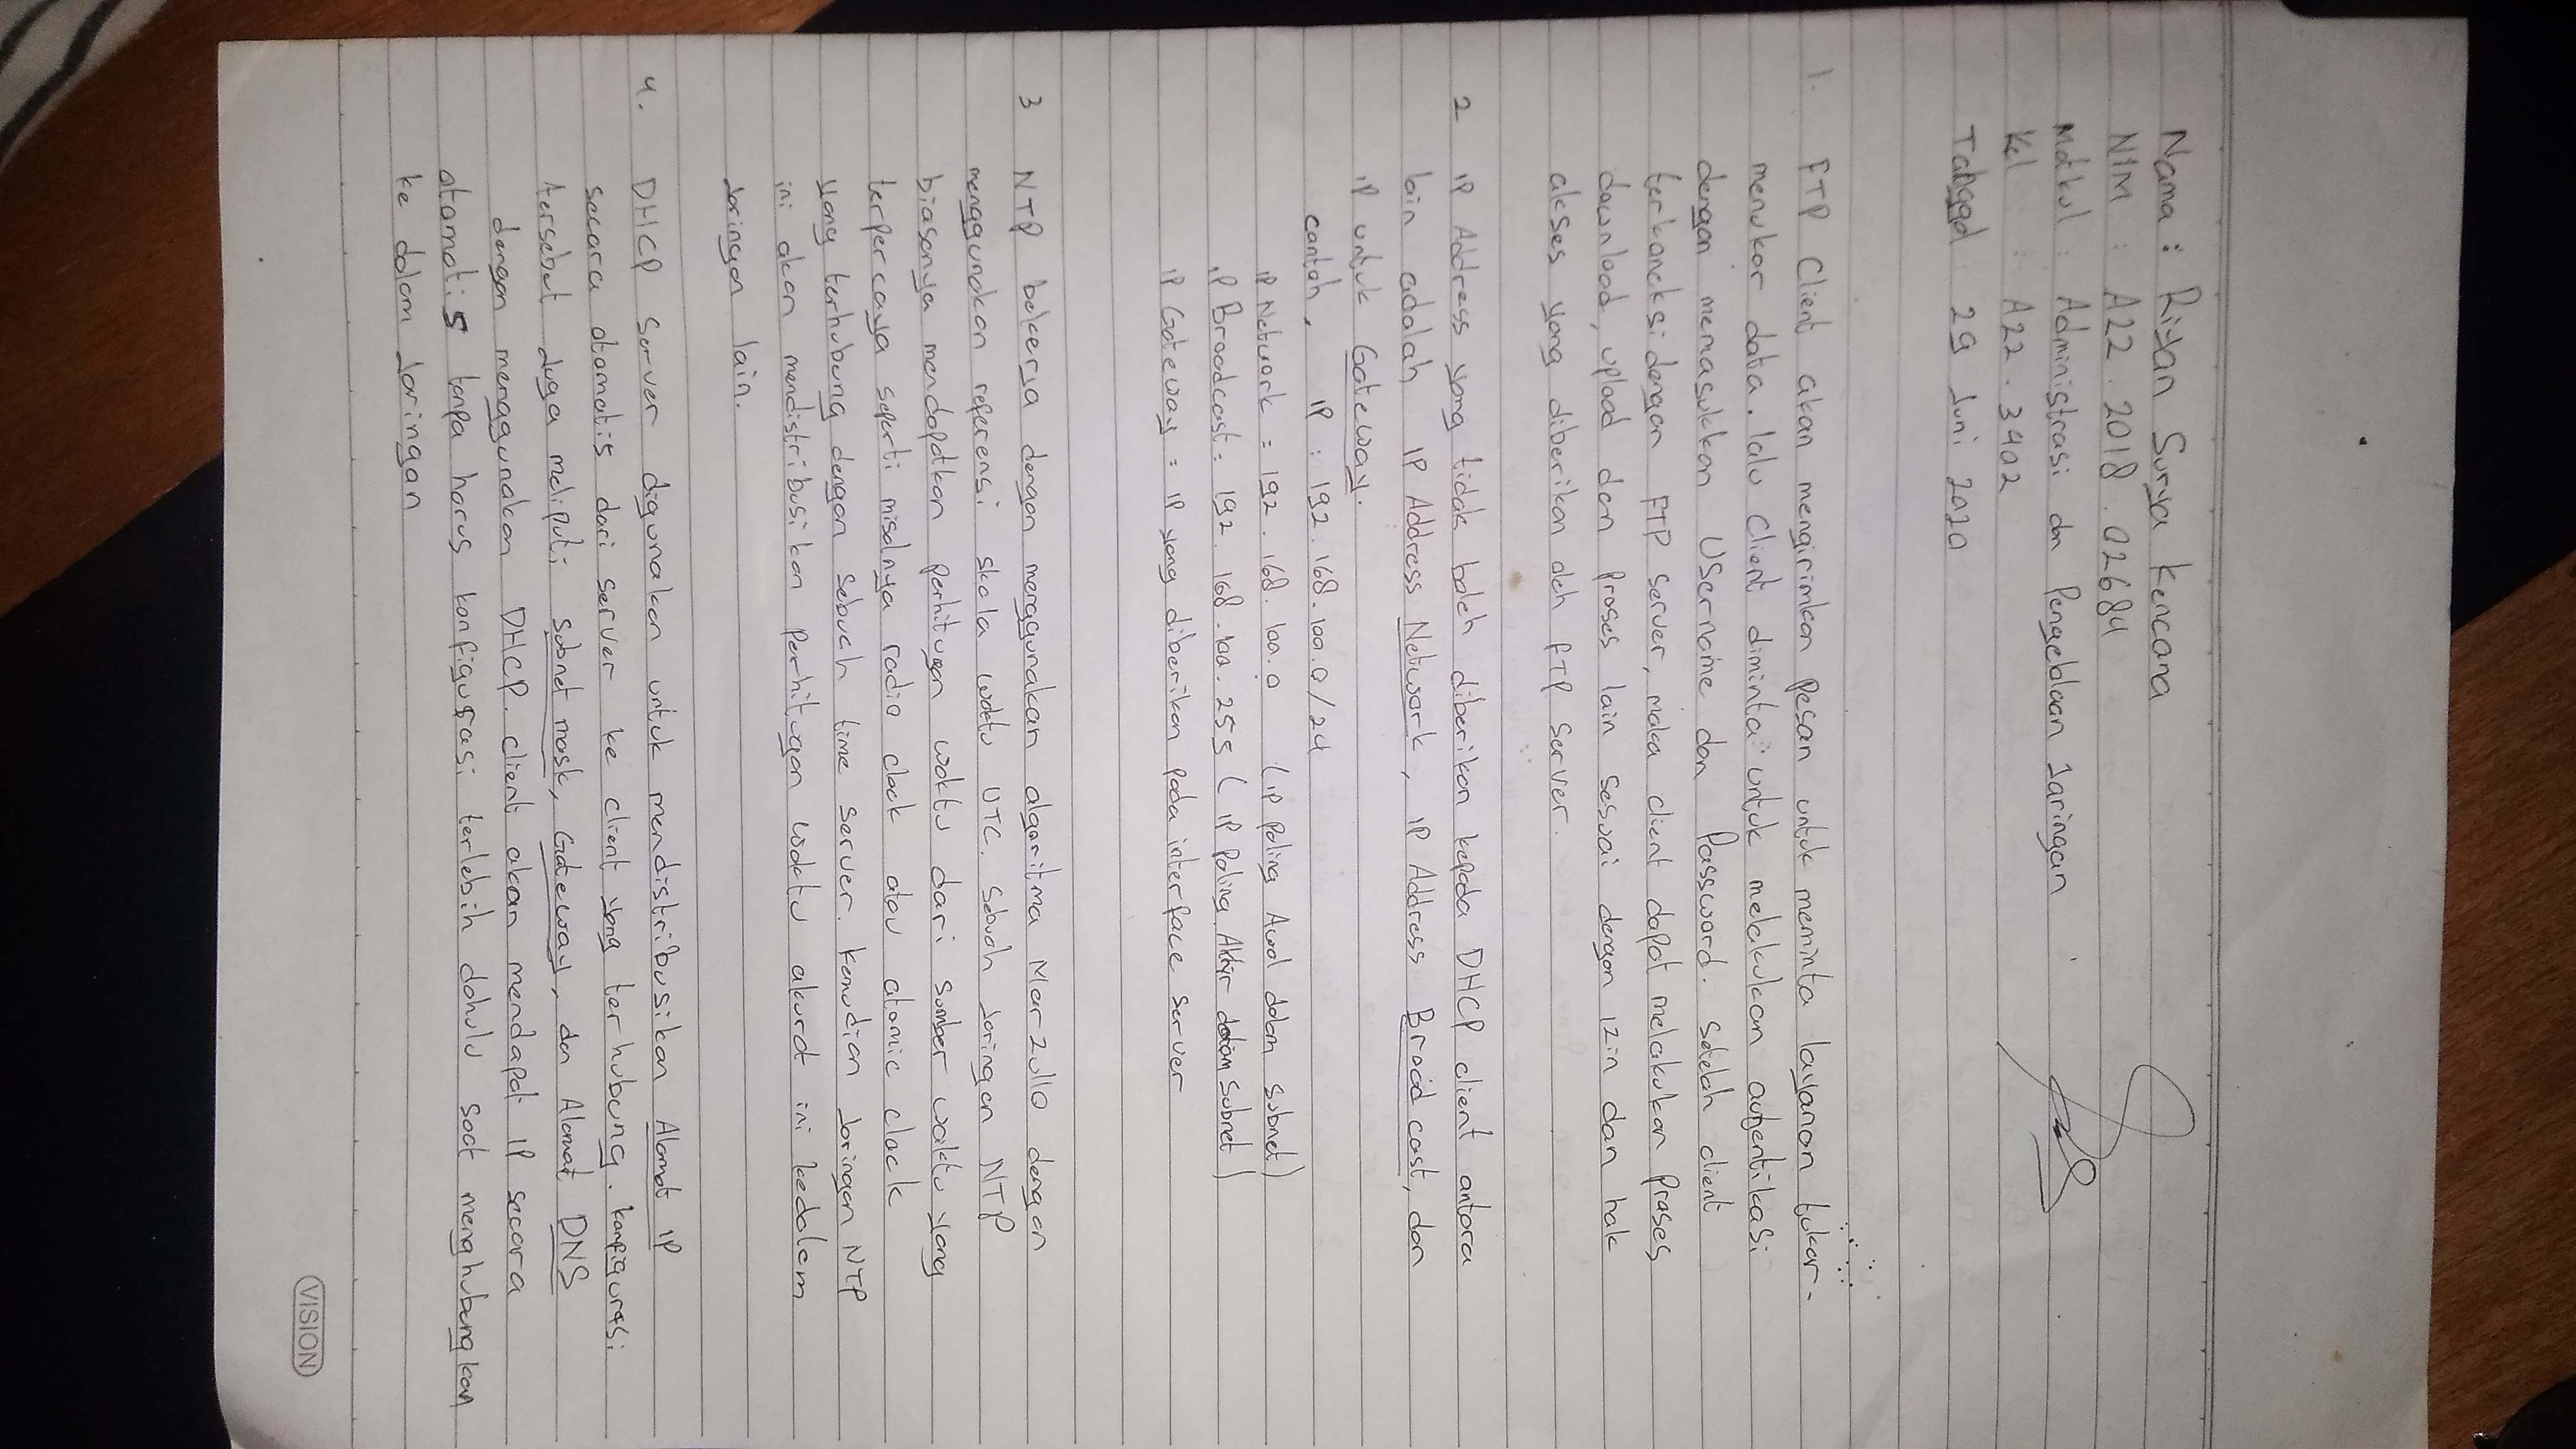 Nama : Rizan Surya Kencana
NIM : A22.2018.02684
Matkul : Administrasi dan Pengelolaan Jaringan
Kel : A22.3402
Tanggal : 29 Juni 2020
1. FTP Client akan mengirimkan pesan untuk meminta layanan tukar-
menukar data. lalu client diminta untuk melakukan autentikasi
dengan memasukkan Username dan Password. Setelah client
terkoneksi dengan FTP server, maka client dapat melakukan proses
download, upload dan proses lain sesuai dengan izin dan hak
akses yang diberikan oleh FTP Server.
2 IP Address yang tidak boleh diberikan kepada DHCP client antara
lain adalah IP Address Network, IP Address Broadcast, dan
IP untuk Gateway.
contoh, IP : 192.168.100.0/24
IP Network = 192.168.100.0 (IP Paling Awal dalam subnet)
IP Broadcast = 192.168.100.255 (IP Paling Akhir dalam Subnet)
IP Gateway = IP yang diberikan pada interface server
3 NTP bekerja dengan menggunakan algoritma Marzullo dengan
menggunakan referensi skala waktu UTC. Sebuah Jaringan NTP
biasanya mendapatkan perhitungan waktu dari sumber waktu yang
terpercaya seperti misalnya radio clock atau atomic clock
yang terhubung dengan sebuah time server. kemudian Jaringan NTP
ini akan mendistribusikan perhitungan waktu akurat ini kedalam
Jaringan lain.
4. DHCP Server digunakan untuk mendistribusikan Alamat IP
secara otomatis dari server ke client yang terhubung. konfigurasi
tersebut Juga meliputi subnet mask, Gateway, dan Alamat DNS
dengan menggunakan DHCP. client akan mendapat IP secara
otomatis tanpa harus konfigurasi terlebih dahulu saat menghubungkan
ke dalam Jaringan
VISION